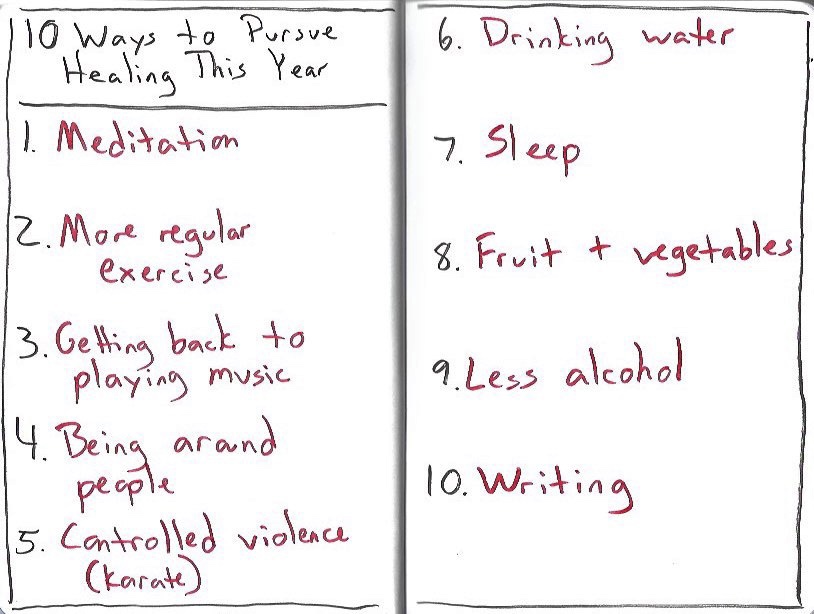 10 Ways to Pursue
Healing This Year
1. Meditation
2. More regular
exercise
3. Getting back to
playing music
4. Being around
people
5. Controlled violence
(karate)
6. Drinking water
7. Sleep
8. Fruit + vegetables
9. Less alcohol
10. Writing